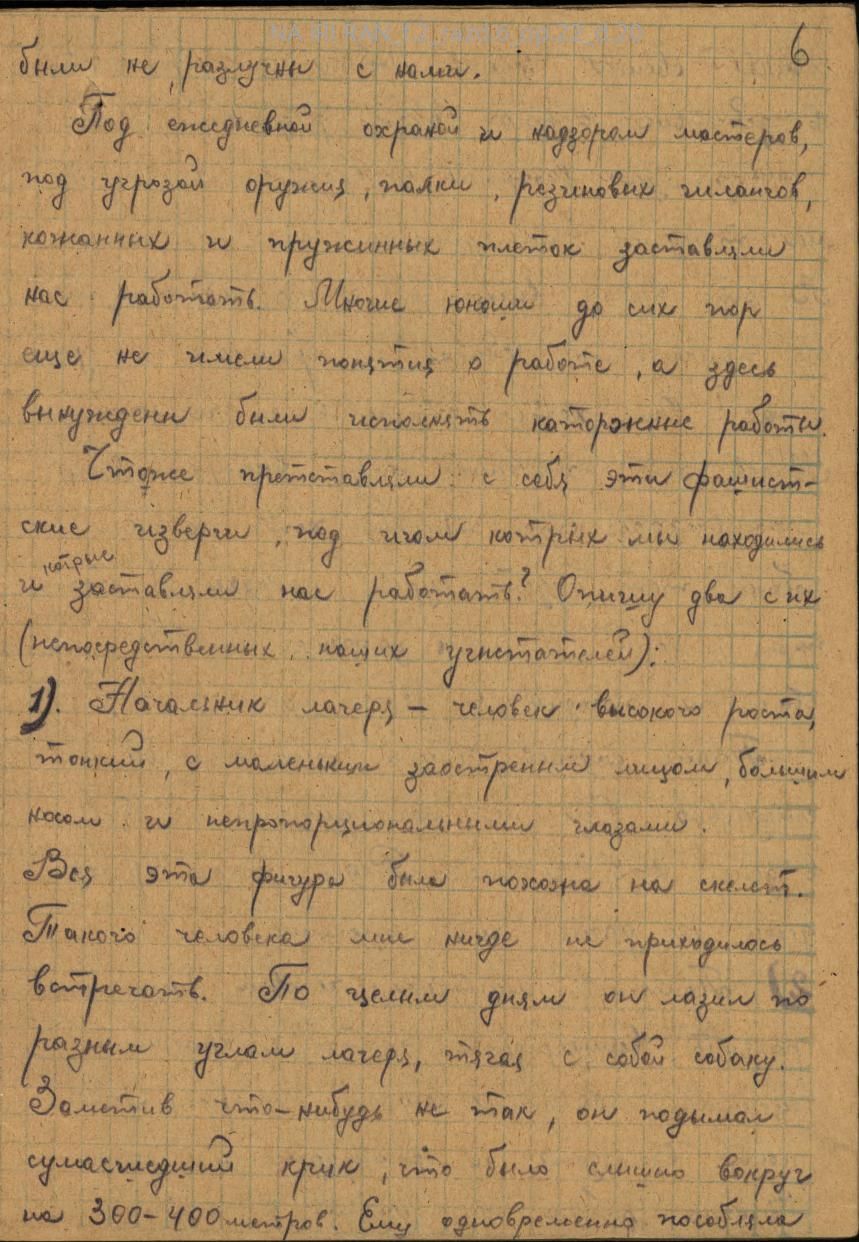 6
были не разлучны с нами.
Под ежедневной охраной и надзором мастеров,
под угрозой оружия, палки, резиновых шлангов,
кожанных и пружинных плеток заставляли
нас работать. Многие юноши до сих пор
еще не имели понятия о работе, а здесь
вынуждены были исполнять каторжные работы.
Чтоже претставляли с себя эти фашист-
ские изверги, под игом котрых мы находились
и котрые заставляли нас работать? Опишу два с их
(непосредственных наших угнетателей):
1). Начальник лагеря – человек высокого роста,
тонкий, с маленьким заостренным лицом, большим
носом и непропорциональными глазами.
Вся эта фигура была похожа на скелет.
Такого человека мне нигде не приходилось
встречать. По целым дням он лазил по
разным углам лагеря, тягая с собой собаку.
Заметив что-нибудь не так, он подымал
сумасшедший крик, что было слышно вокруг
на 300-400 метров. Ему одновременно пособляла